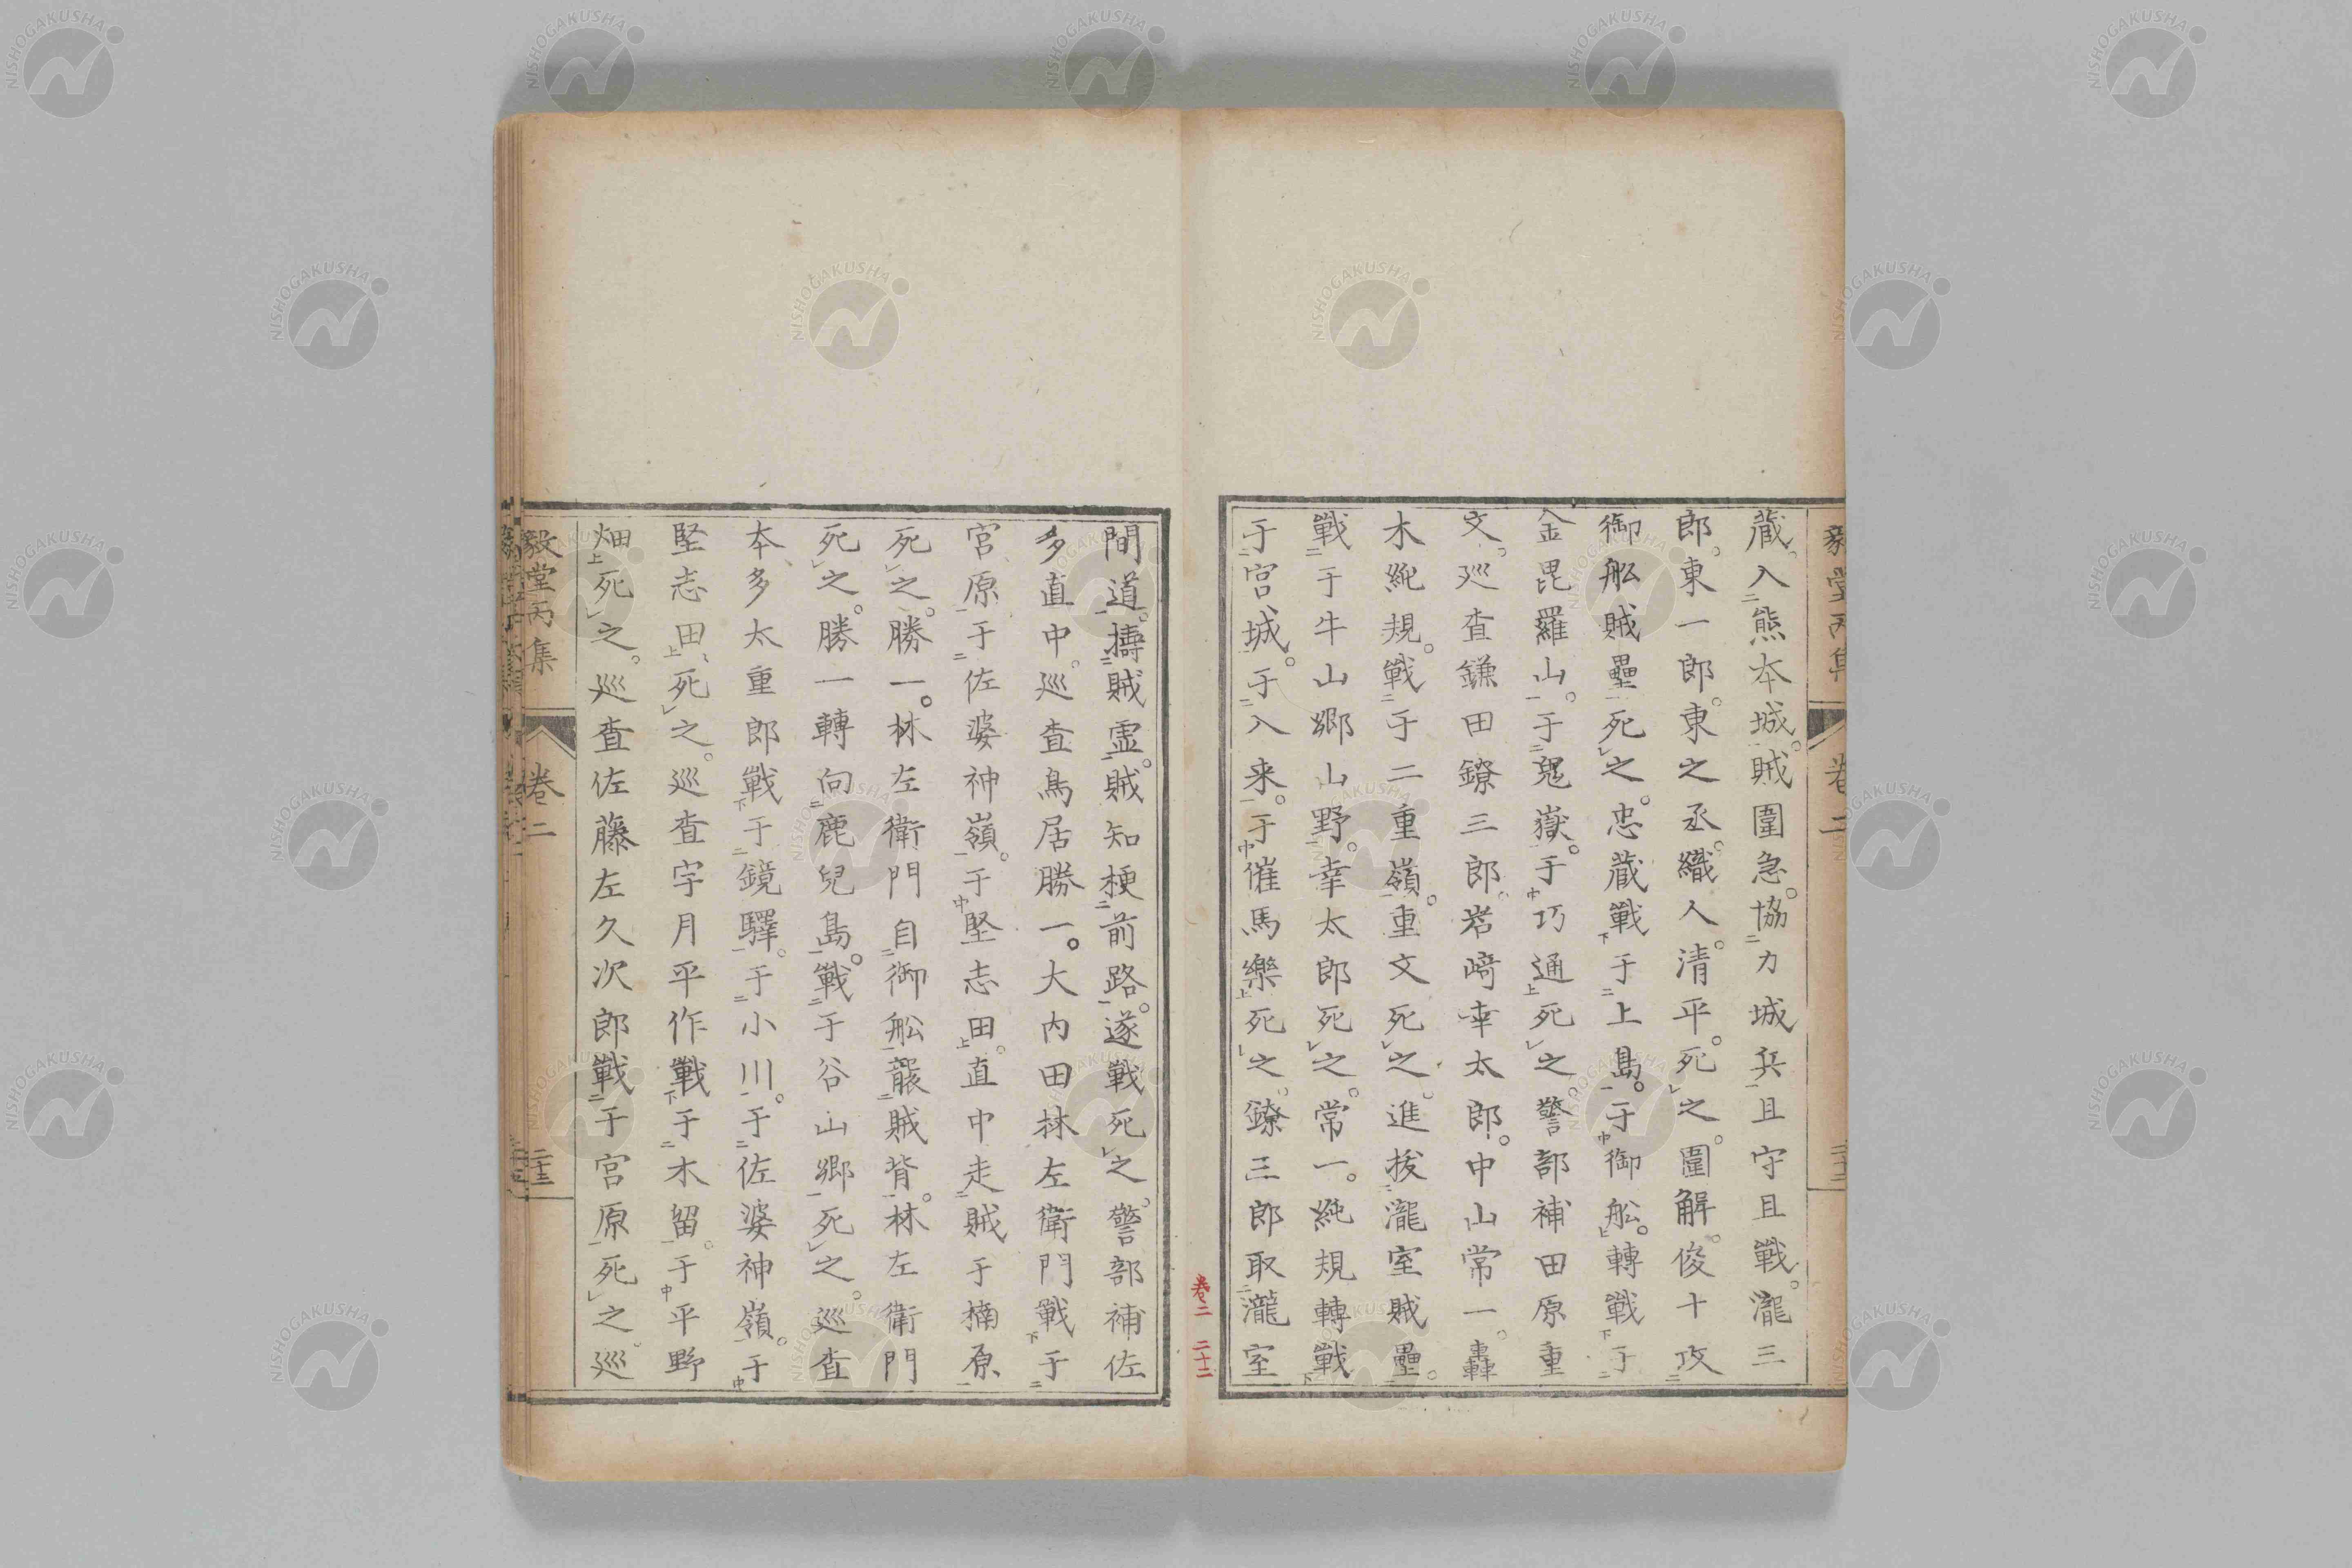 藏。入熊本城。賊圍急。協力城兵且守且戰。瀧三
郎。東一郎。東之丞。織人。清平。死之。圍解。俊十攻
御舩賊壘死之。忠藏戰于上島。于御舩。轉戰于
金毘羅山。于冕嶽。于巧通死之。警部補田原重
文。巡査鎌田鐐三郎。岩﨑幸太郎。中山常一。轟
木純規。戰于二重嶺。重文死之。進拔瀧室賊壘。
戰于牛山鄉山野。幸太郎死之。常一。純規轉戰
于宮城。于入来。于催馬樂死之。鐐三郎取瀧室
間道。擣賊虛。賊知梗前路。遂戰死之。警部補佐
多直中。巡査鳥居勝一。大内田林左衛門戰于
宮原于佐婆神嶺。于堅志田。直中走賊于楠原
死之。勝一。林左衛門自御舩襲賊背。林左衛門
死之。勝一轉向鹿兒島。戰于谷山鄉死之。巡査
本多太重郎戰于鏡驛。于小川。于佐婆神嶺。于
堅志田死之。巡査宇月平作戰于木留。于平野
畑死之。巡査佐藤左久次郎戰于宮原死之。巡
毅堂丙集 卷二 二十三
卷二 二十二